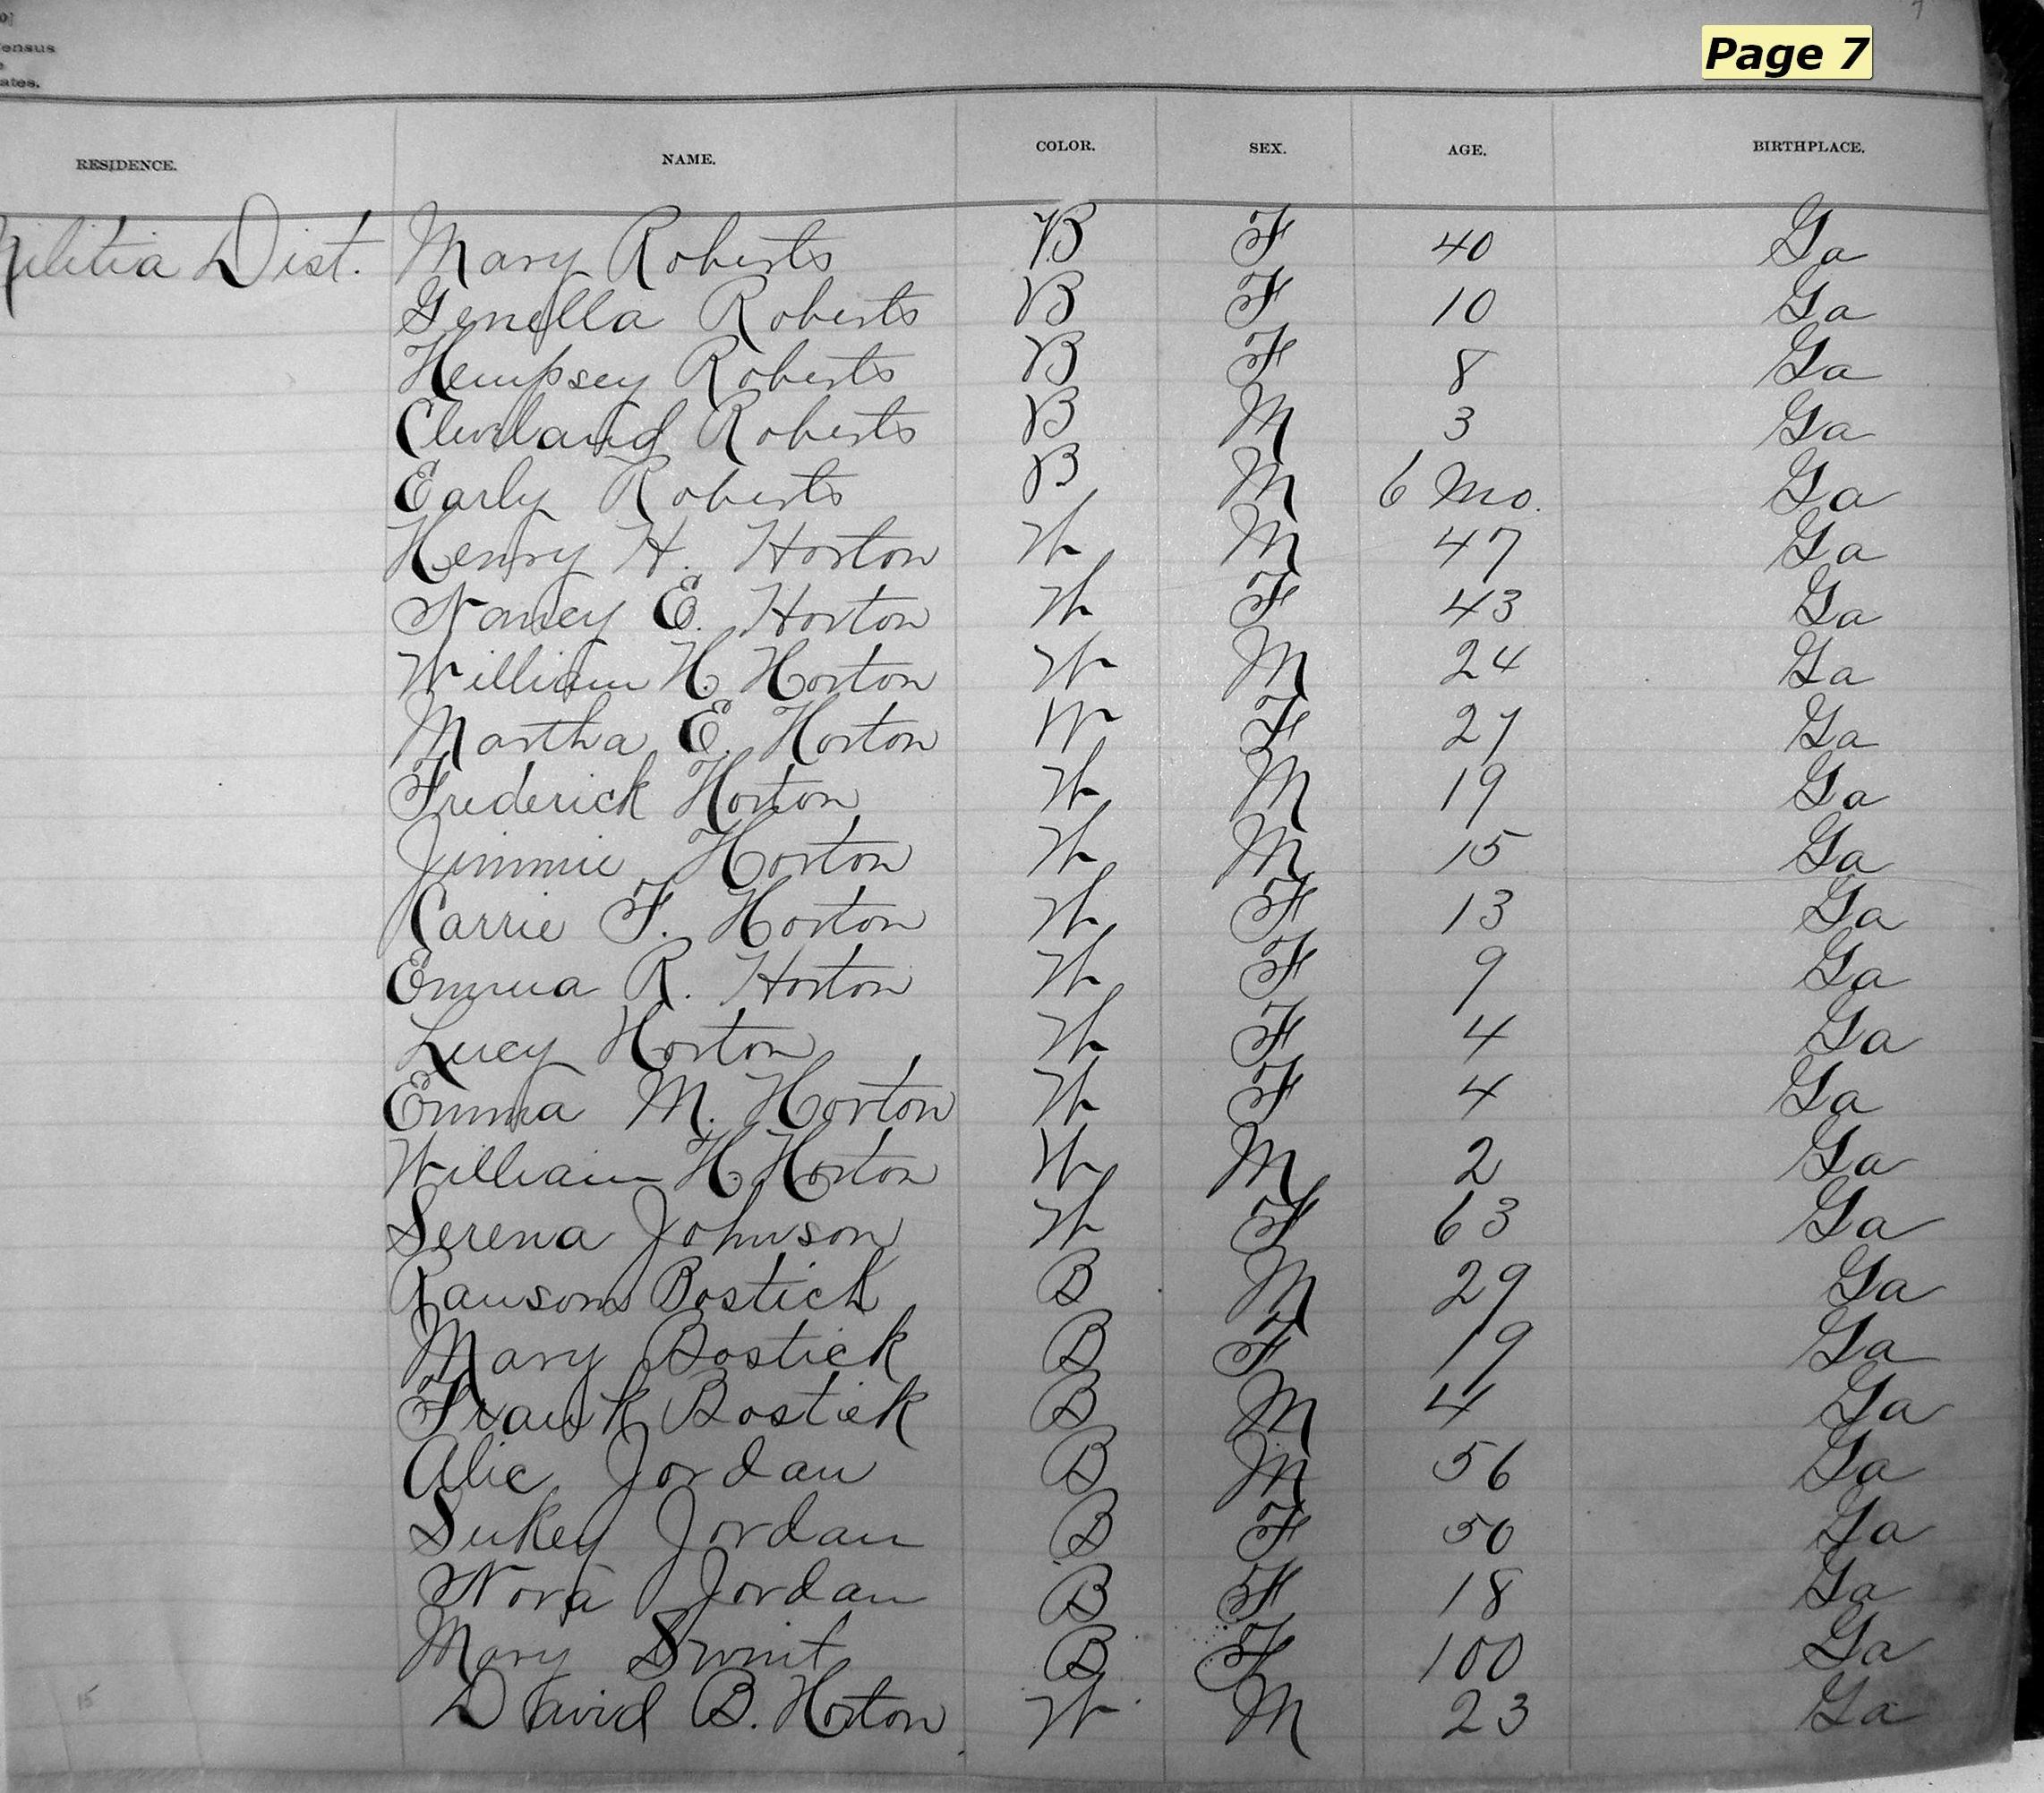 Page 7
7
ensus
ates.
RESIDENCE. NAME. COLOR. SEX. AGE. BIRTHPLACE.
Militia Dist. Mary Roberts B F 40 Ga
Genella Roberts B F 10 Ga
Hempsey Roberts B F 8 Ga
Cleveland Roberts B M 3 Ga
Early Roberts B M 6 Mo. Ga
Henry H. Horton W M 47 Ga
Nancy E. Horton W F 43 Ga
William H. Horton W M 24 Ga
Martha E. Horton W F 27 Ga
Frederick Horton W M 19 Ga
Jimmie Horton W M 15 Ga
Carrie F. Horton W F 13 Ga
Emma R. Horton W F 9 Ga
Lucy Horton W F 4 Ga
Emma M. Horton W F 4 Ga
William H. Horton W M 2 Ga
Serena Johnson W F 63 Ga
Ransom Bostick B M 29 Ga
Mary Bostick B F 19 Ga
Frank Bostick B M 4 Ga
Alic Jordan B M 56 Ga
Sukey Jordan B F 50 Ga
Nora Jordan B F 18 Ga
Mary Swint B F 100 Ga
15 David B. Horton W M 23 Ga